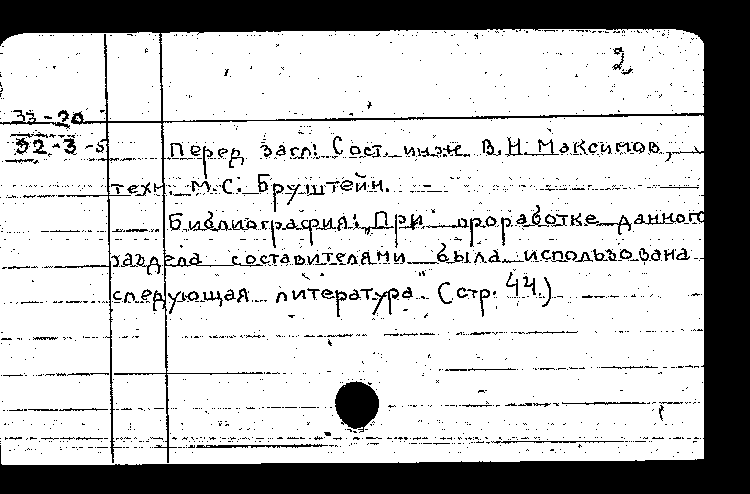 2
33-20
32-3-5
Перед загл: Сост. инж. В.Н. Максимов,
техн. М.С. Бруштейн.
Библиография: „При проработке данного
раздела составителями была использована
следующая литература" (стр. 44.)